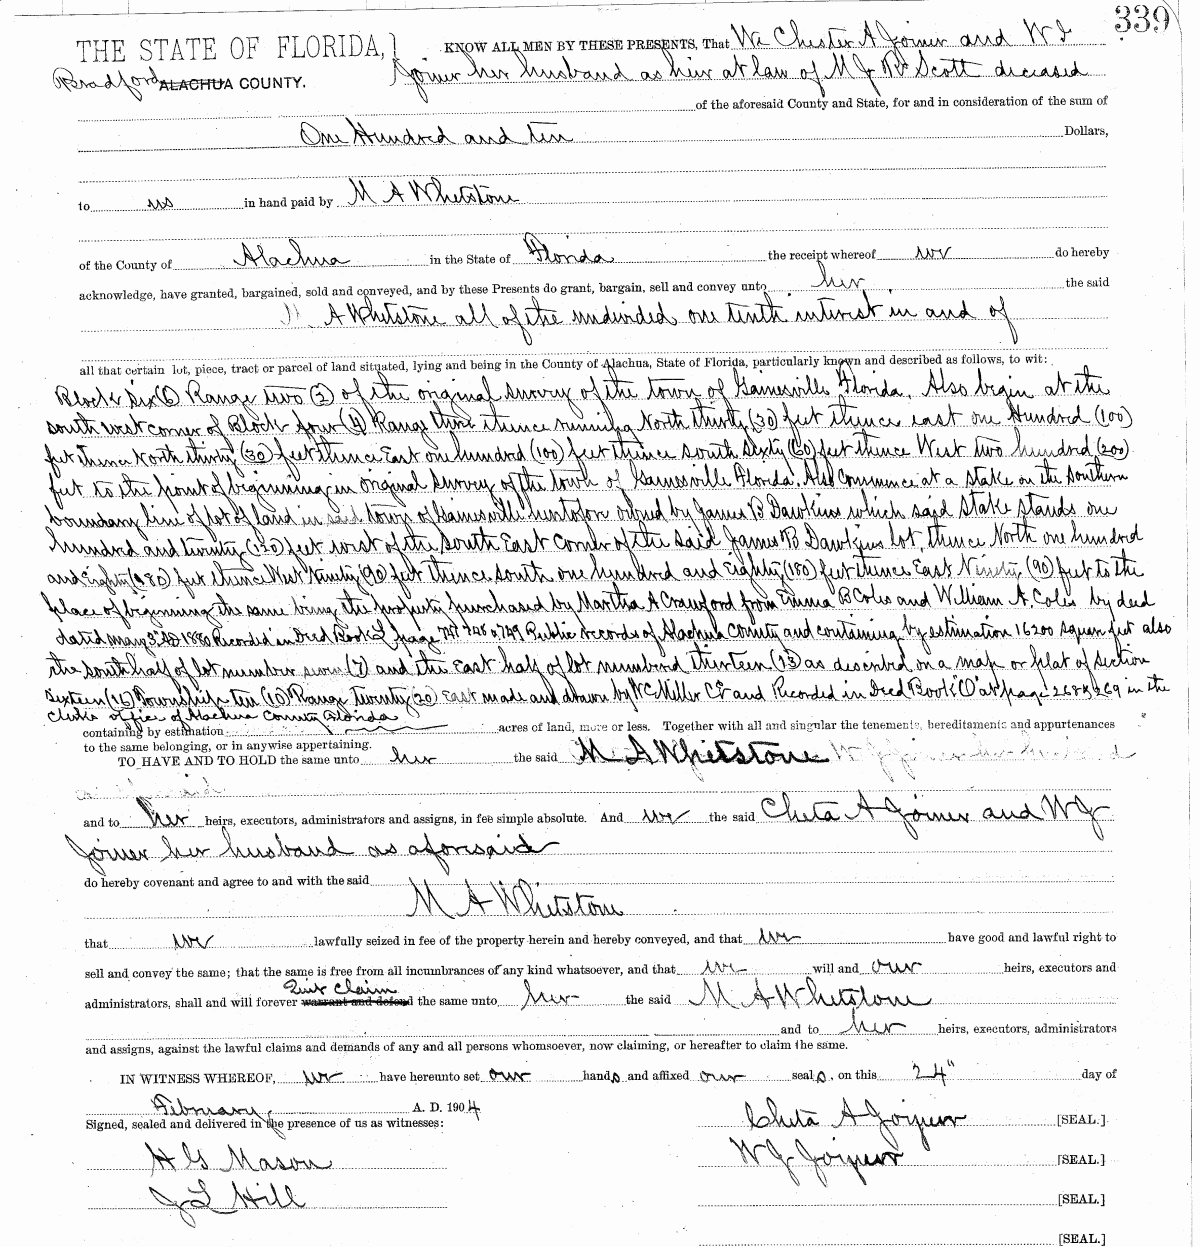 339
THE STATE OF FLORIDA, KNOW ALL MEN BY THESE PRESENTS, That We Chester A Joiner and W J
Bradford ALACHUA COUNTY. Joiner her husband as heir at law of M J R Scott deceased
of the aforesaid County and State, for and in consideration of the sum of
One Hundred and ten Dollars,
to us in hand paid by M A Whetstone
of the County of Alachua in the State of Florida the receipt whereof we do hereby
acknowledge, have granted, bargained, sold and conveyed, and by these Presents do grant, bargain, sell and convey unto her the said
A Whetstone all of the undivided one tenth interest in and of
all that certain lot, piece, tract or parcel of land situated, lying and being in the County of Alachua, State of Florida, particularly known and described as follows, to wit:
Block Six (6) Range two (2) of the original survey of the town of Gainesville Florida. Also begin at the
south west corner of Block four (4) Range three thence running North thirty (30) feet thence east one Hundred (100)
feet thence North thirty (30) feet thence East one hundred (100) feet thence south Sixty (60) feet thence West two hundred (200)
feet to the point of beginning in original survey of the town of Gainesville Florida. Also Commence at a stake on the southern
boundary line of lot of land in said town of Gainesville heretofore owned by James B Dawkins which said Stake stands one
hundred and twenty (120) feet west of the South East Corner of the said James B Dawkins lot, thence North one hundred
and Eighty (180) feet thence West Ninety (90) feet thence south one hundred and Eighty (180) feet thence East Ninety (90) feet to the
place of beginning the same being the property purchased by Martha A Crawford from Emma B Coles and William A. Coles by deed
dated May 3rd AD 1880 Recorded in Deed Book L page 747 748 & 749 Public records of Alachua County and containing by estimation 16200 square feet also
the south half of lot number seven (7) and the East half of lot numbered thirteen (13) as described on a map or plat of Section
Sixteen (16) Township ten (10) Range twenty (20) East made and drawn by N C Miller CE and Recorded in Deed Book "O" at page 268 & 269 in the
Clerks office of Alachua County Florida
containing by estimation acres of land, more or less. Together with all and singular the tenements, hereditaments and appurtenances
to the same belonging, or in anywise appertaining.
TO HAVE AND TO HOLD the same unto her the said M A Whetstone
and to her heirs, executors, administrators and assigns, in fee simple absolute. And we the said Cheta A Joiner and W J
Joiner her husband as aforesaid
do hereby covenant and agree to and with the said
M A Whetstone
that we lawfully seized in fee of the property herein and hereby conveyed, and that we have good and lawful right to
sell and convey the same; that the same is free from all incumbrances of any kind whatsoever, and that we will and our heirs, executors and
Quit Claim
administrators, shall and will forever warrant and defend the same unto her the said M A Whetstone
and to her heirs, executors, administrators
and assigns, against the lawful claims and demands of any and all persons whomsoever, now claiming, or hereafter to claim the same.
IN WITNESS WHEREOF, we have hereunto set our hands and affixed our seals, on this 24" day of
February, A. D. 1904
Signed, sealed and delivered in the presence of us as witnesses:
Cheta A Joiner [SEAL.]
H G Mason
W J Joiner [SEAL.]
J L Hill
[SEAL.]
[SEAL.]